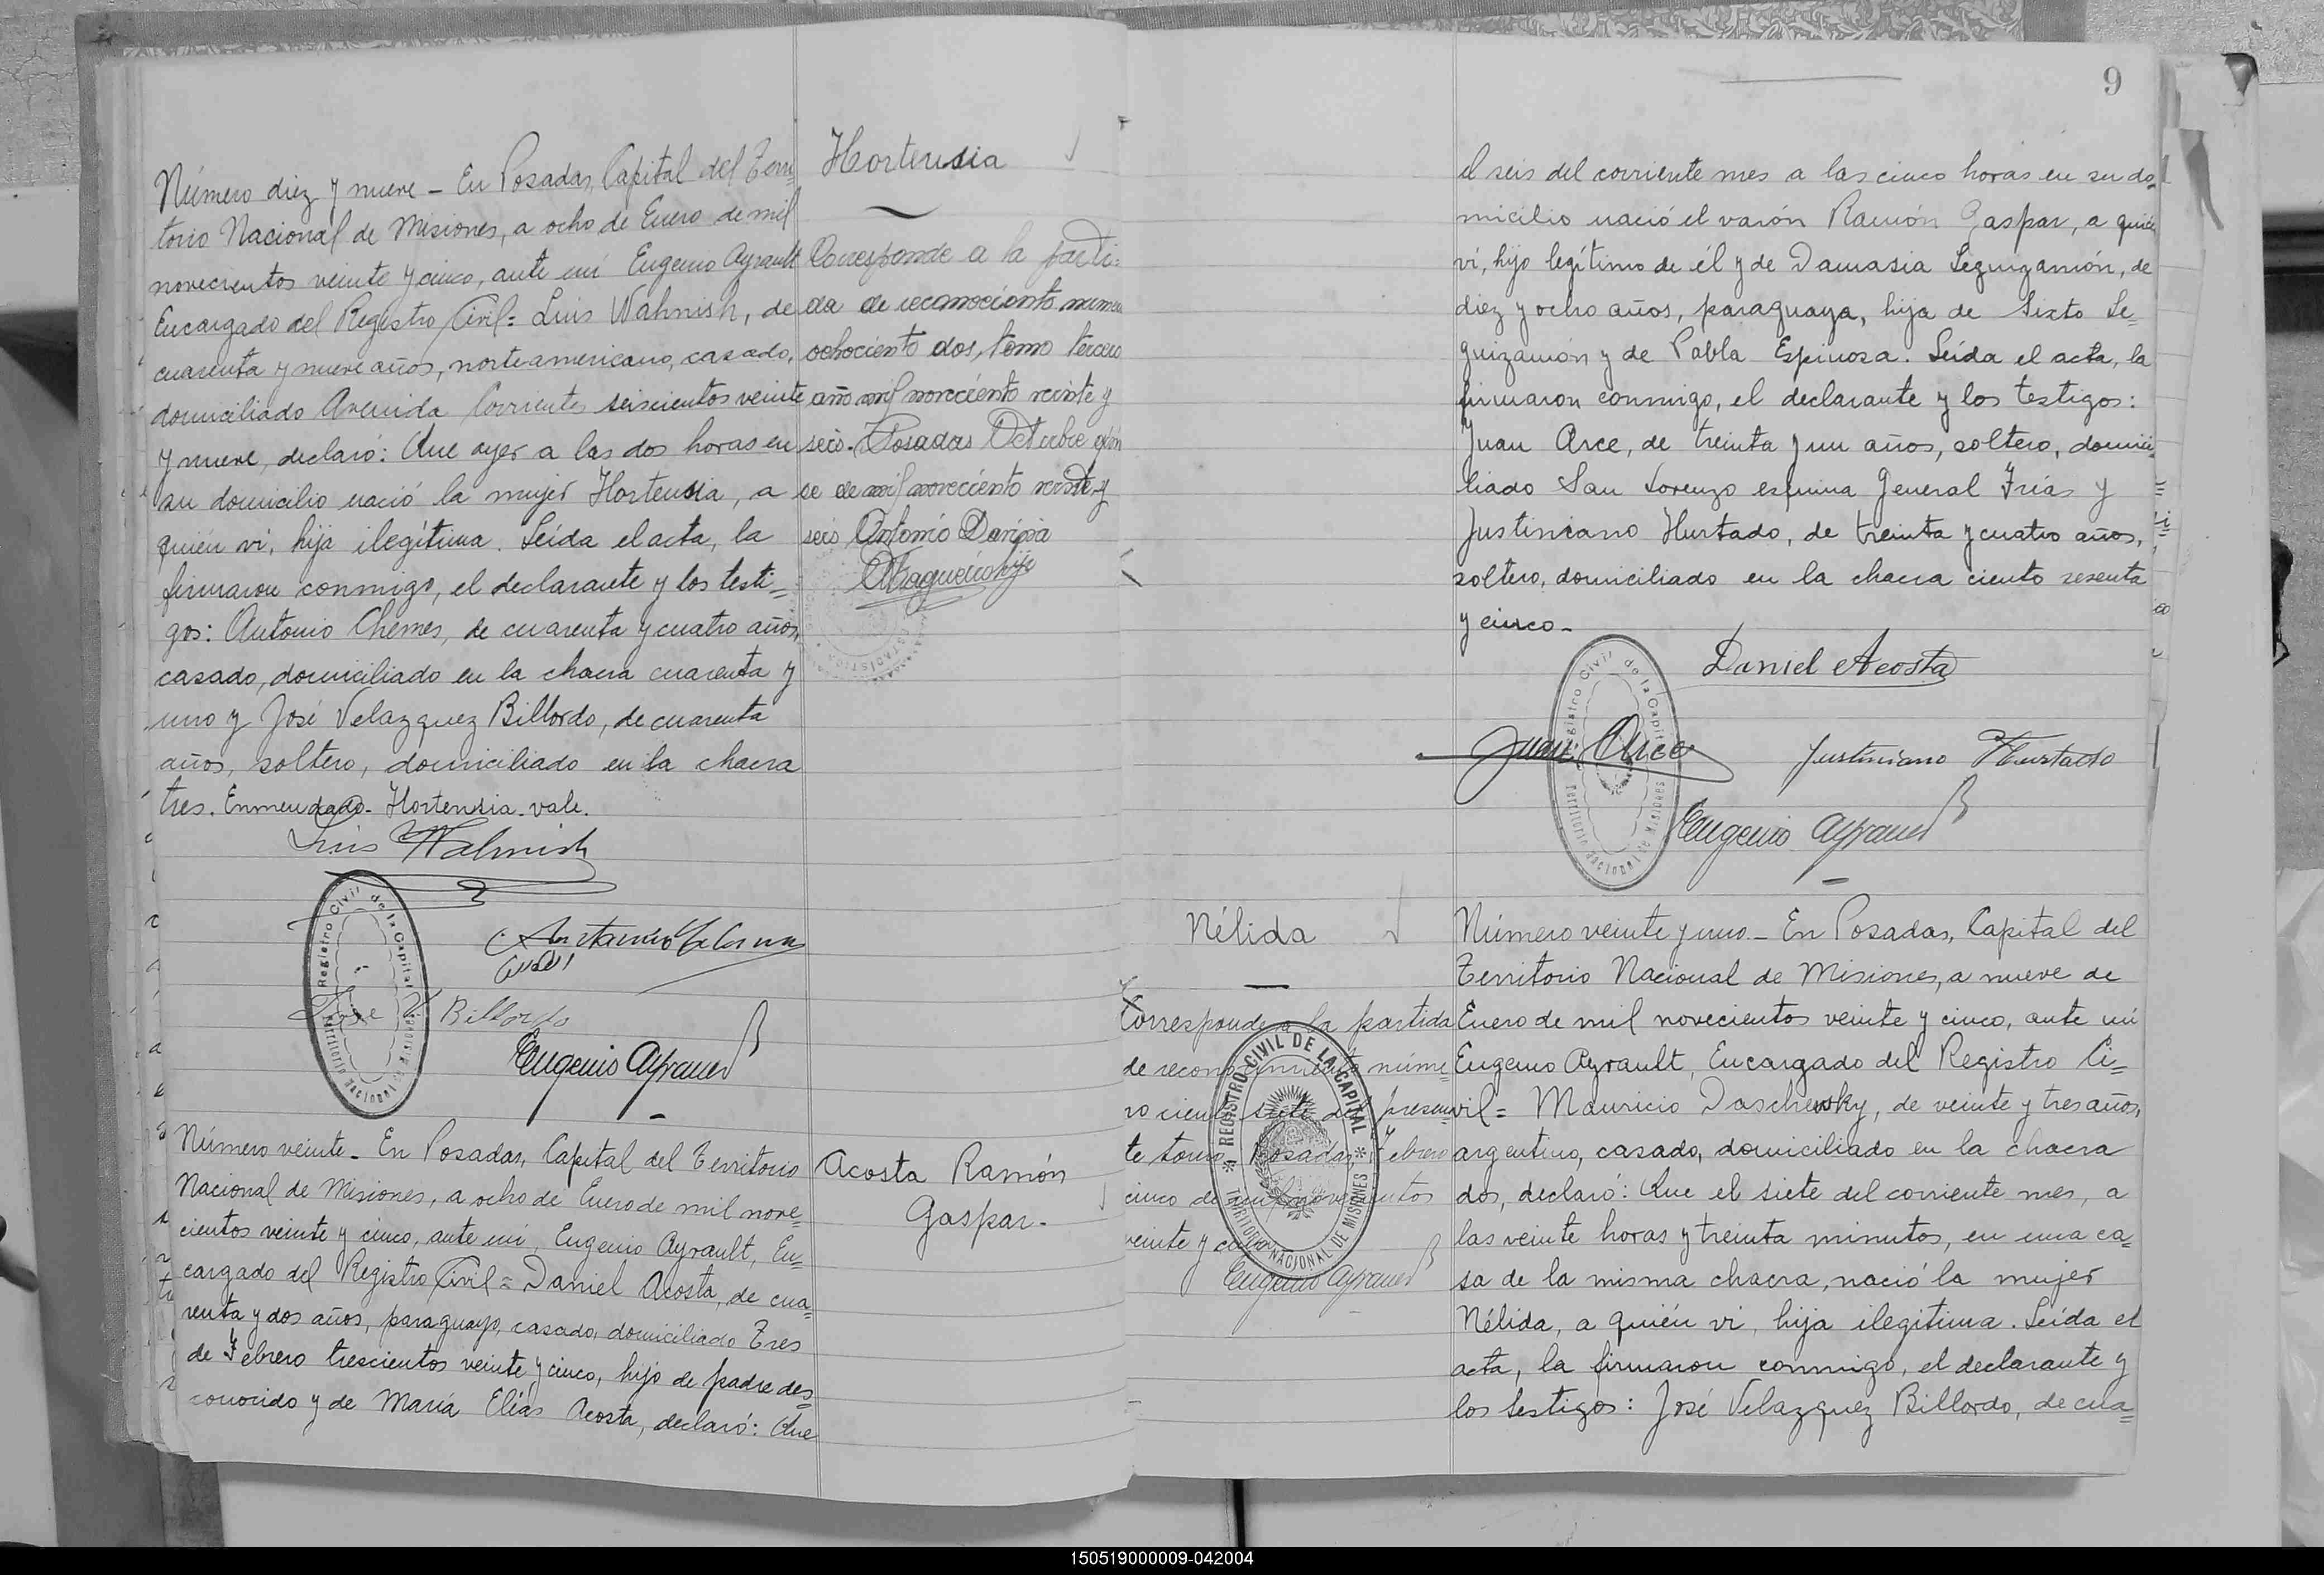 Número diez y nueve - En Posadas, Capital del Terri-
torio Nacional de Misiones, a ocho de Enero de mil
novecientos veinte y cinco, ante mí Eugenio Ayrault
Encargado del Registro Civil= Luis Wahnish, de
cuarenta y nueve años, norteamericano, casado,
domiciliado Avenida Corrientes seiscientos veinte
y nueve, declaró: Que ayer a las dos horas en
su domicilio nació la mujer Hortensia, a
quién vi, hija ilegítima. Leída el acta, la
firmaron conmigo, el declarante y los testi=
gos: Antonio Chemes, de cuarenta y cuatro años,
casado, domiciliado en la chacra cuarenta y
uno y José Velazquez Billordo, de cuarenta
años, soltero, domiciliado en la chacra
tres. Enmendado- Hortensia- vale.
Luis Wahnish
Registro Civil de la Capital
Territorio Nacional de Misiones
Antonio
José V. Billordo
Eugenio Ayrault
Hortensia
Corresponde a la parti=
da de reconociento numero
ochociento dos, tomo tercero
año mil noveciento veinte y
seis. Posadas Octubre
se de mil noveciento veinte y
seis Antonio
Número veinte- En Posadas, Capital del Territorio
Nacional de Misiones, a ocho de Enero de mil nove=
cientos veinte y cinco, ante mí, Eugenio Ayrault, En=
cargado del Registro Civil= Daniel Acosta, de cua=
renta y dos años, paraguayo, casado, domiciliado Tres
de Febrero trescientos veinte y cinco, hijo de padre des=
conocido y de María Elías Acosta, declaró: Que
Acosta Ramón
Gaspar.
9
el seis del corriente mes a las cinco horas en su do=
micilio nació el varón Ramón Gaspar, a quién
vi, hijo legítimo de él y de Damasia Seguizamón, de
diez y ocho años, paraguaya, hija de Sixto Se=
guizamón y de Pabla Espinosa. Leída el acta, la
firmaron conmigo, el declarante y los testigos:
Juan Arce, de treinta y un años, soltero, domici=
liado San Lorenzo esquina General Frías y
Justiniano Hurtado, de treinta y cuatro años,
soltero, domiciliado en la chacra ciento sesenta
y cinco-
Daniel Acosta
Juan Arce
Justiniano Hurtado
Registro Civil de la Capital
Territorio Nacional de Misiones
Eugenio Ayrault
Nélida
Corresponde a la partida
de reconocimiento núme=
ro ciento siete del presen=
te tomo. Posadas, Febrero
cinco de mil novecientos
veinte y cinco
REGISTRO CIVIL DE LA CAPITAL
TERRITORIO NACIONAL DE MISIONES
Eugenio Ayrault
Número veinte y uno- En Posadas, Capital del
Territorio Nacional de Misiones, a nueve de
Enero de mil novecientos veinte y cinco, ante mí
Eugenio Ayrault, Encargado del Registro Ci=
vil= Mauricio Daschewsky, de veinte y tres años,
argentino, casado, domiciliado en la chacra
dos, declaró: Que el siete del corriente mes, a
las veinte horas y treinta minutos, en una ca=
sa de la misma chacra, nació la mujer
Nélida, a quién vi, hija ilegítima. Leída el
acta, la firmaron conmigo, el declarante y
los testigos: José Velazquez Billordo, de cua=
150519000009-042004